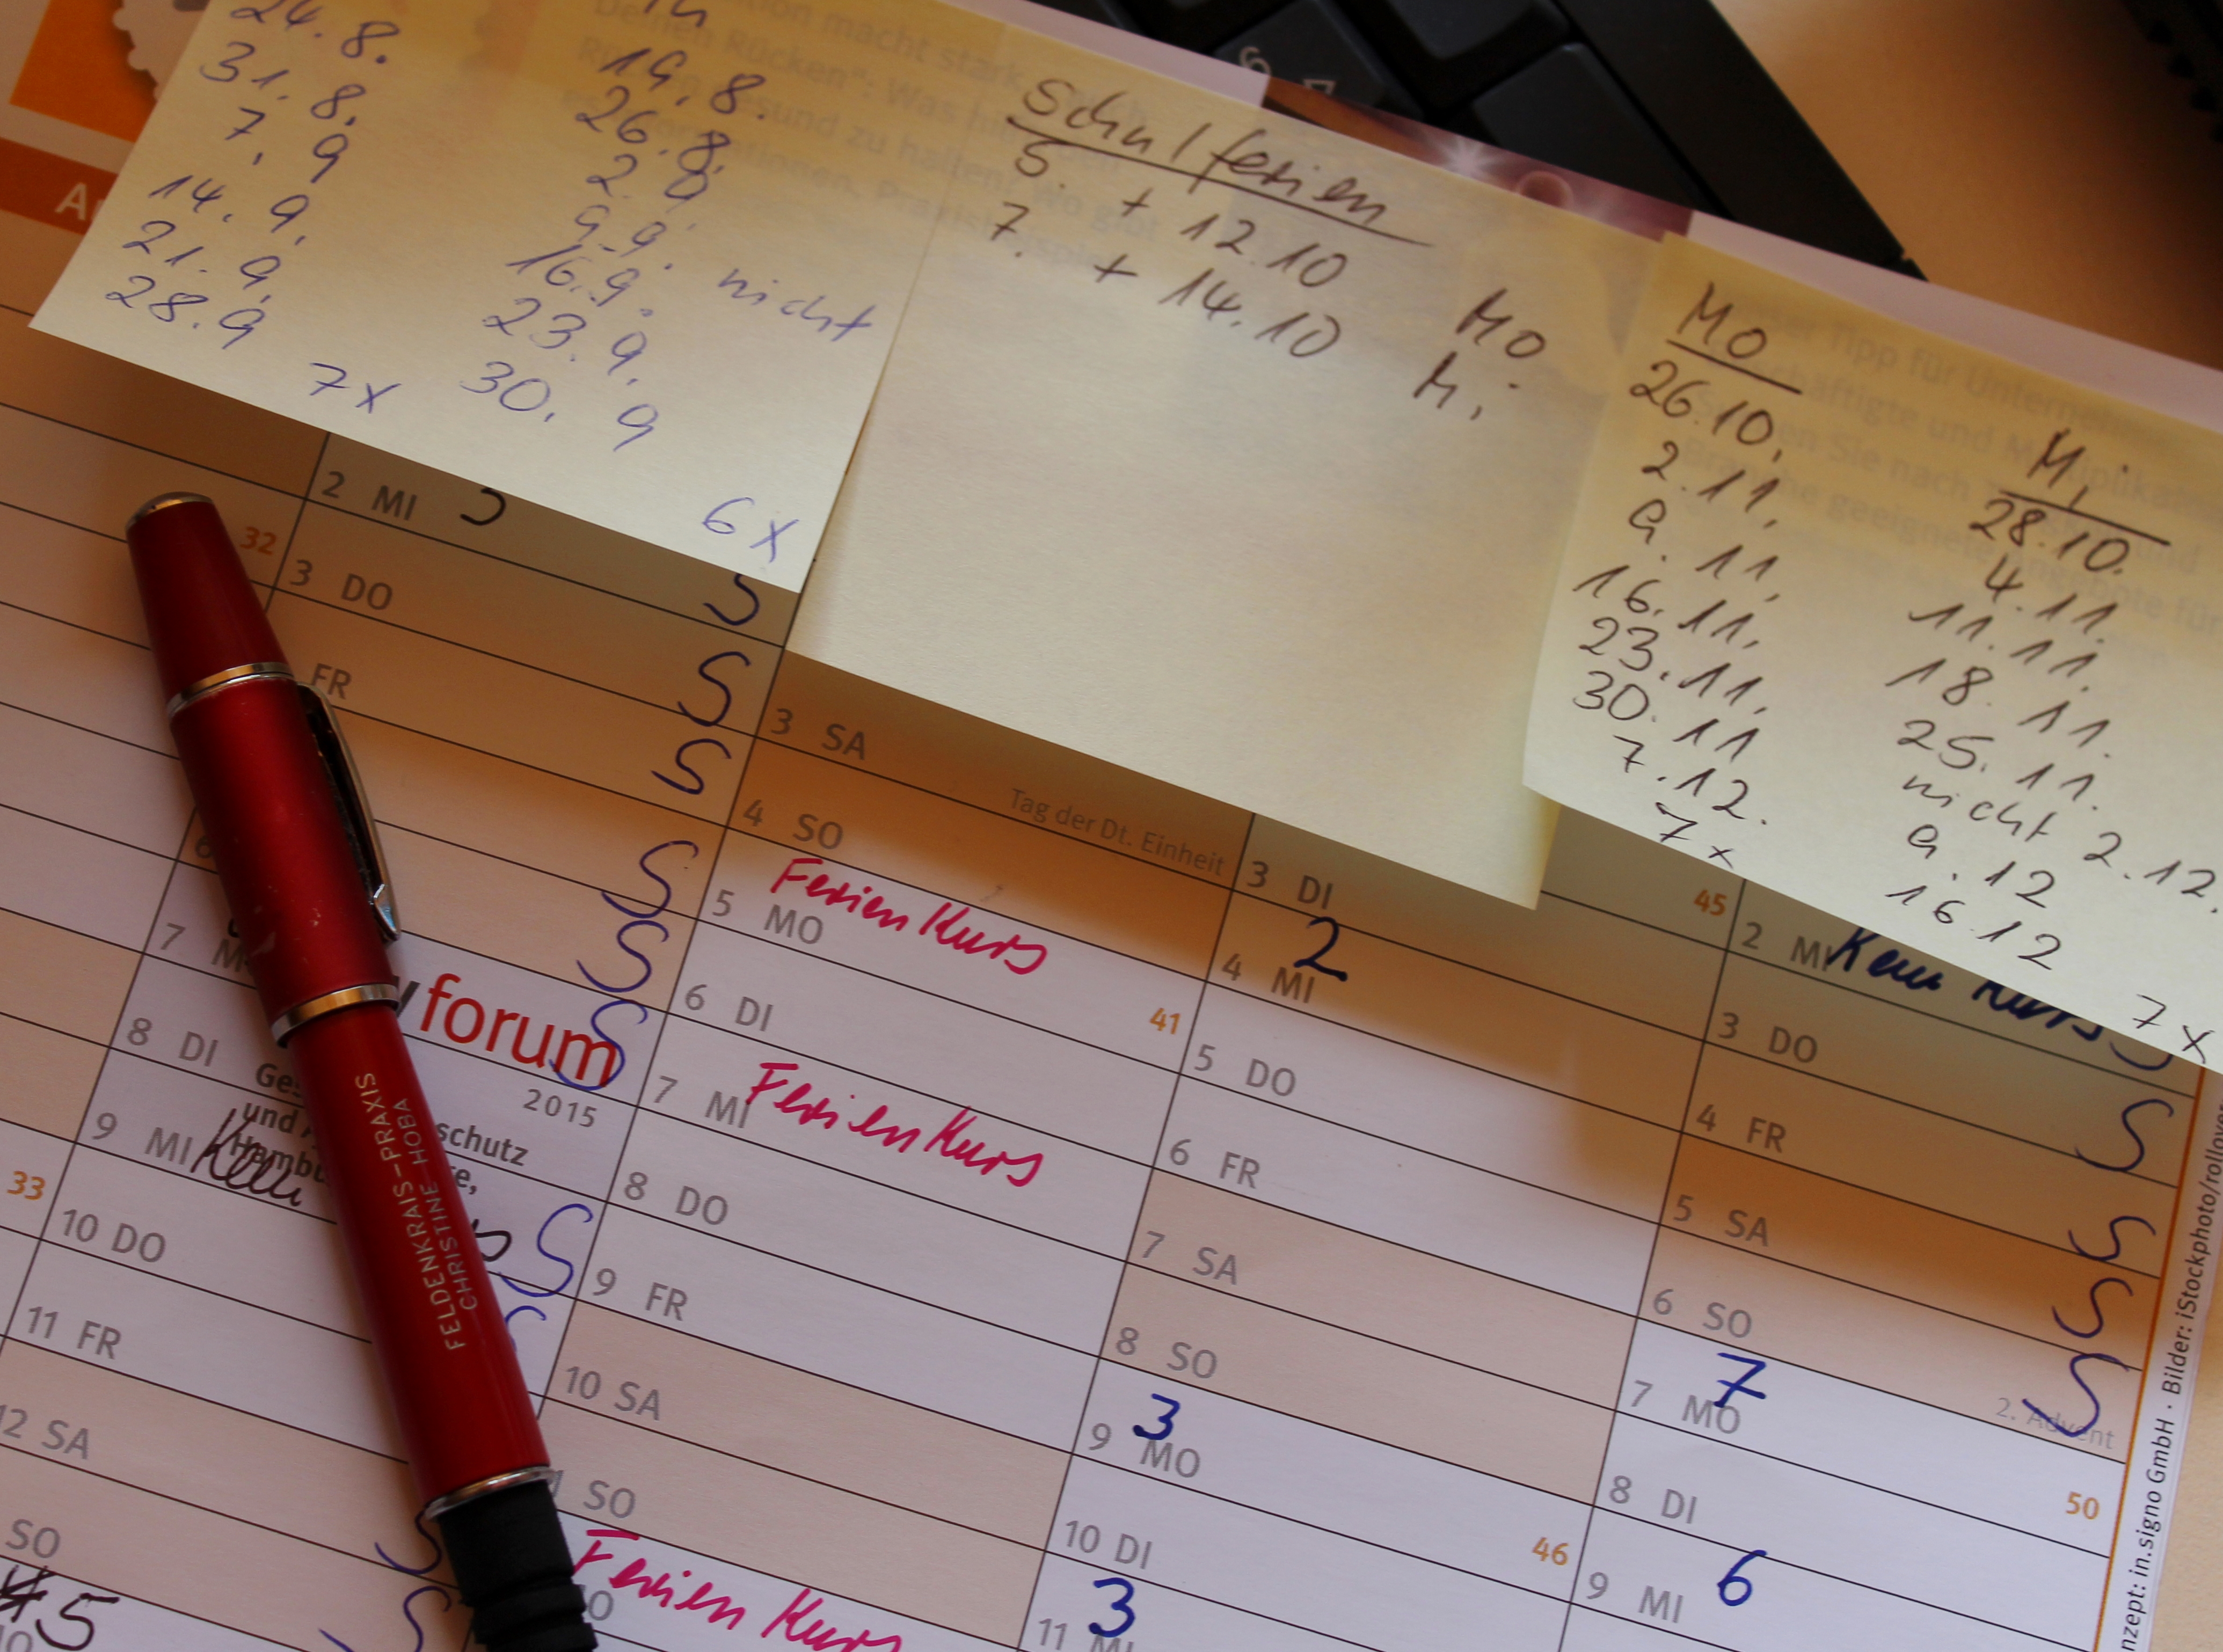 24.8.
31.8.
7.9
14.9.
21.9.
28.9
7x
19.8.
26.8.
2.9.
9.9. nicht
16.9.
23.9.
30.9
6x
Schulferien
5. + 12.10 Mo
7. + 14.10 Mi
Mo
26.10.
2.11.
9.11.
16.11.
23.11.
30.11
7.12.
7x
Mi
28.10.
4.11.
11.11.
18.11.
25.11.
nicht 2.12.
9.12
16.12
7x
32
33
7
8 DI
9 MI
10 DO
11 FR
12 SA
SO
5
2 MI
3 DO
FR
S
S
S
S
S
S
S
forum
2015
schutz
und
FELDENKRAIS-PRAXIS
CHRISTINE HOBA
3 SA Tag der Dt. Einheit
4 SO
5 MO Ferien Kurs 41
6 DI
7 MI Ferien Kurs
8 DO
9 FR
10 SA
SO
Ferien Kurs
3 DI 45
4 MI 2
5 DO
6 FR
7 SA
8 SO
9 MO 3 46
10 DI
11 MI 3
2 MI Kein Kurs S
3 DO S
4 FR S
5 SA S
6 SO 2. Advent S
7 MO 7 50
8 DI
9 MI 6
nzept: in.signo GmbH · Bilder: iStockphoto/rollover